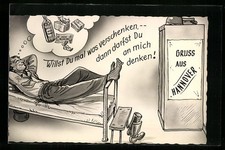 Willst Du mal was verschenken,--
dann darfst Du
an mich
denken!
GRUSS
AUS
HANNOVER